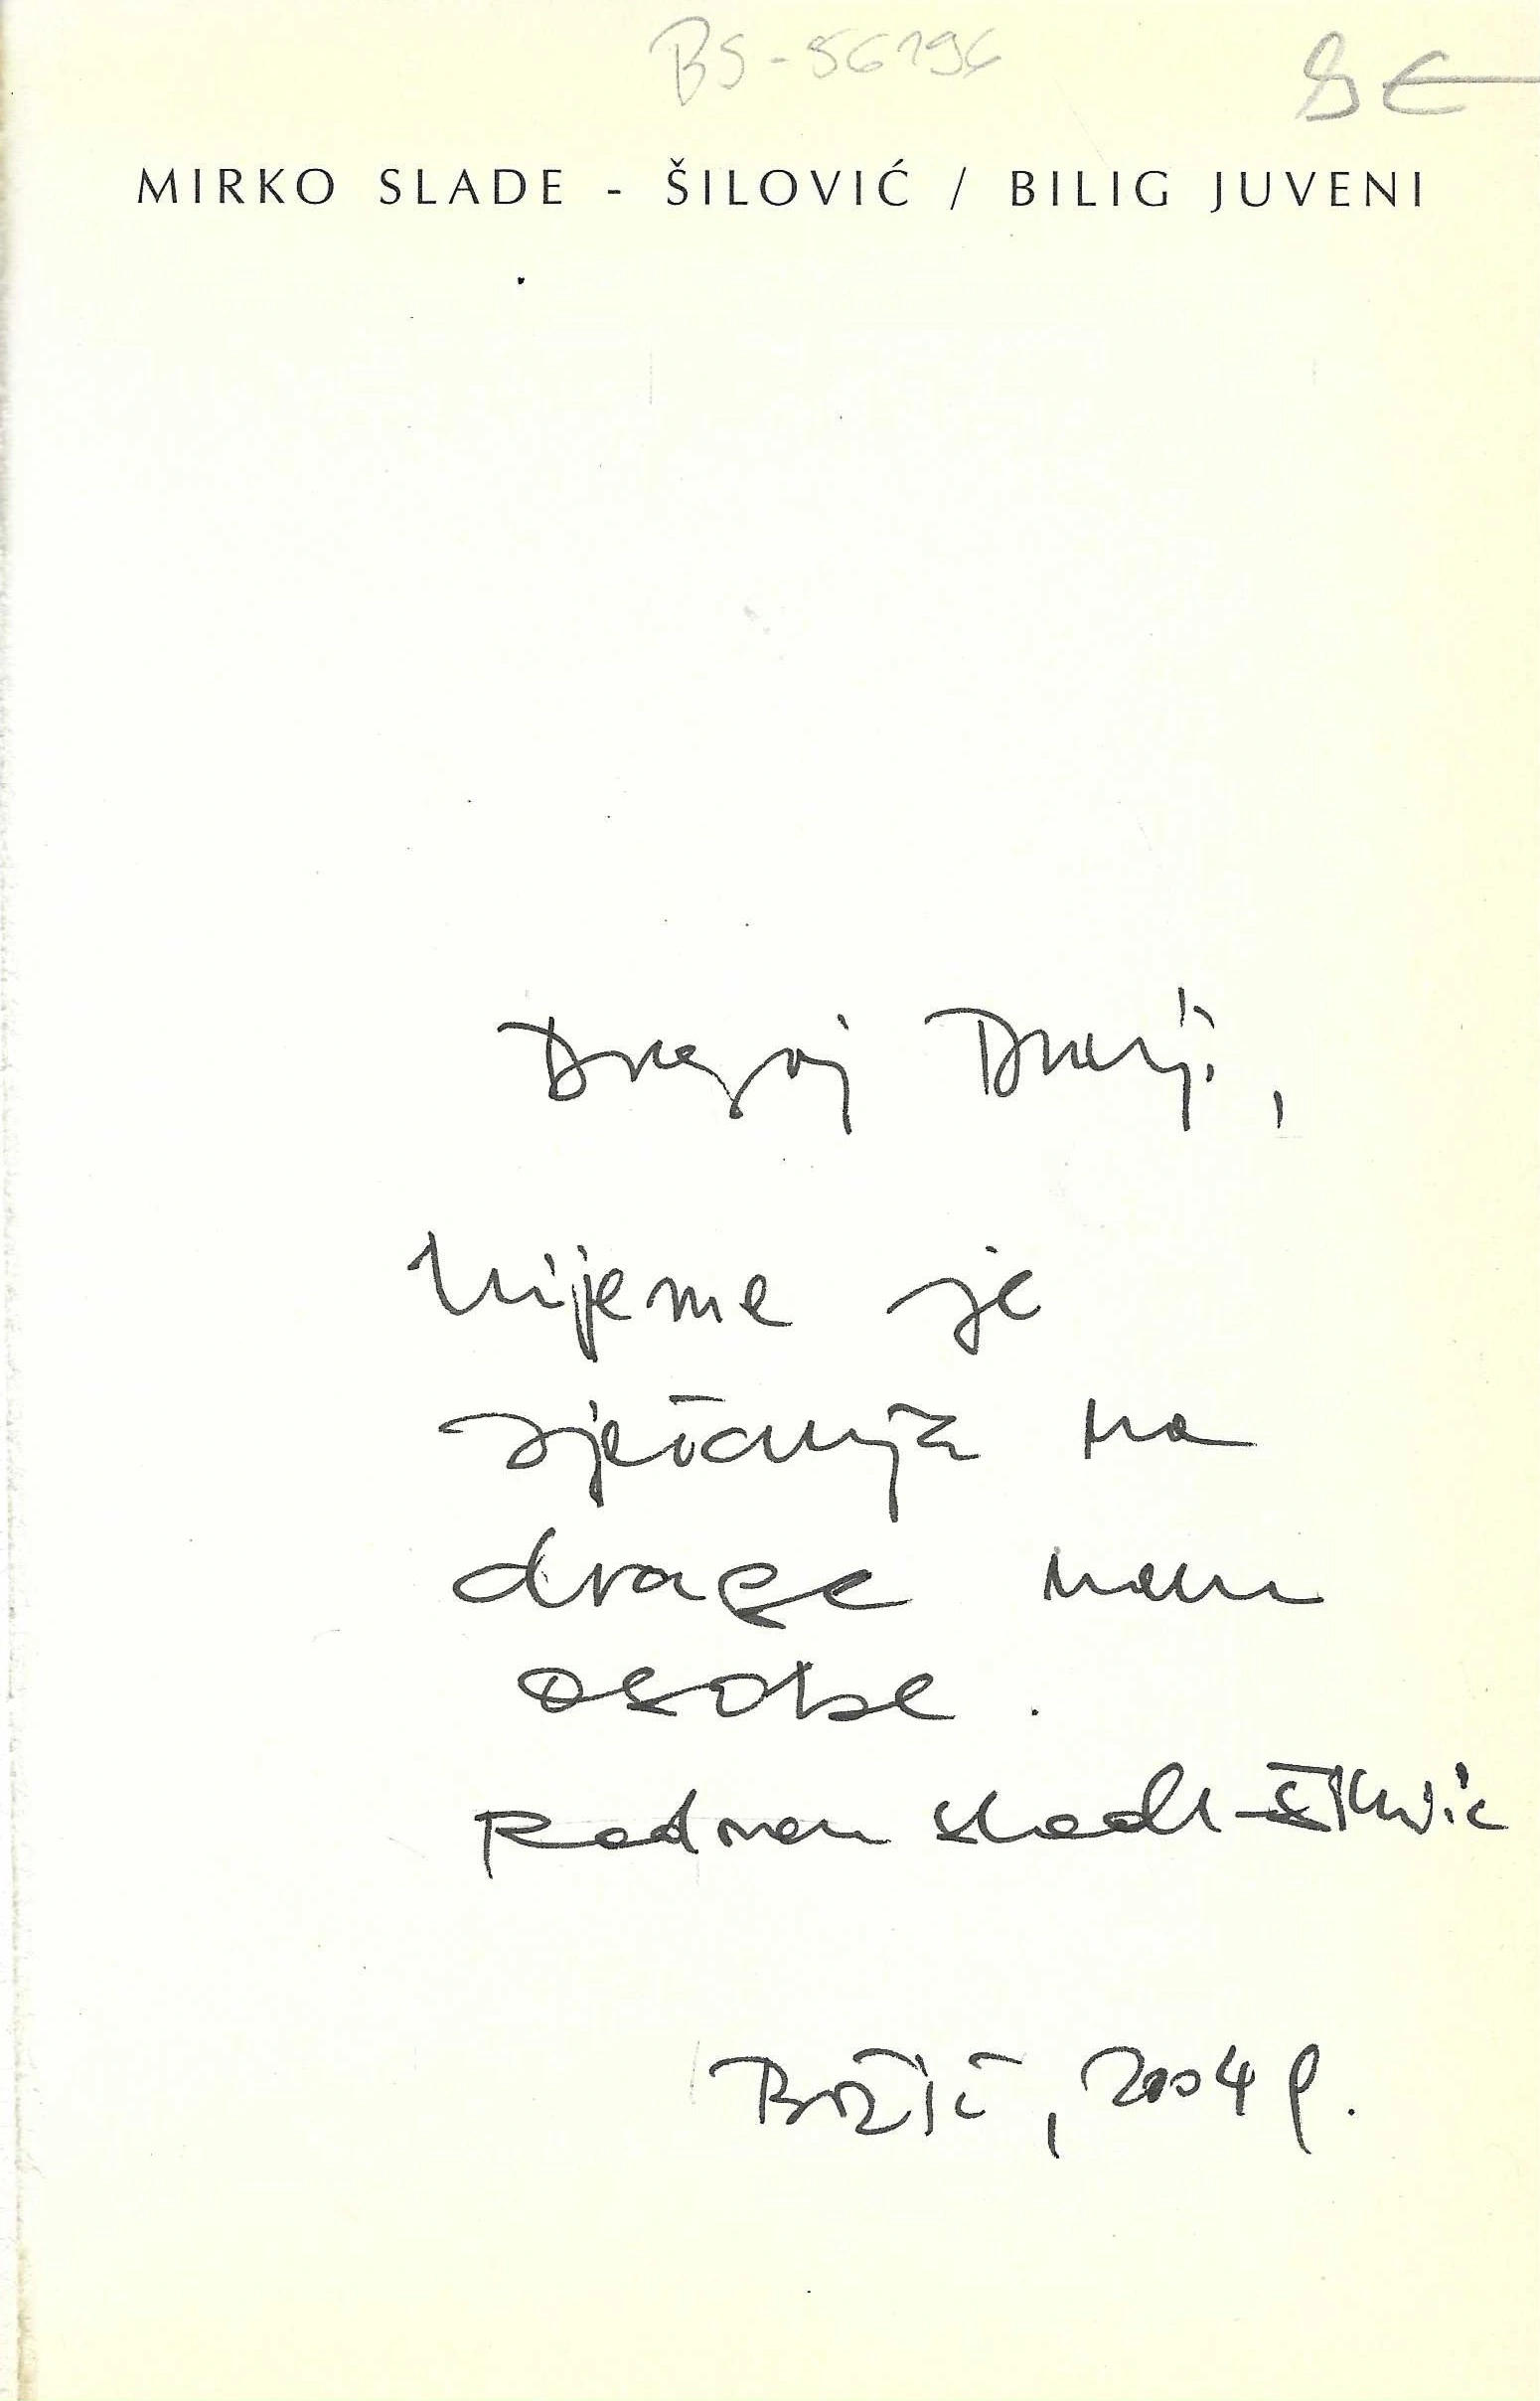 BS-56196
8€
MIRKO SLADE - ŠILOVIĆ / BILIG JUVENI
Dragoj
Vrijeme je
sjećanja na
drage nam
osobe.
Radman Slade-Šilović
Božić, 2004 g.